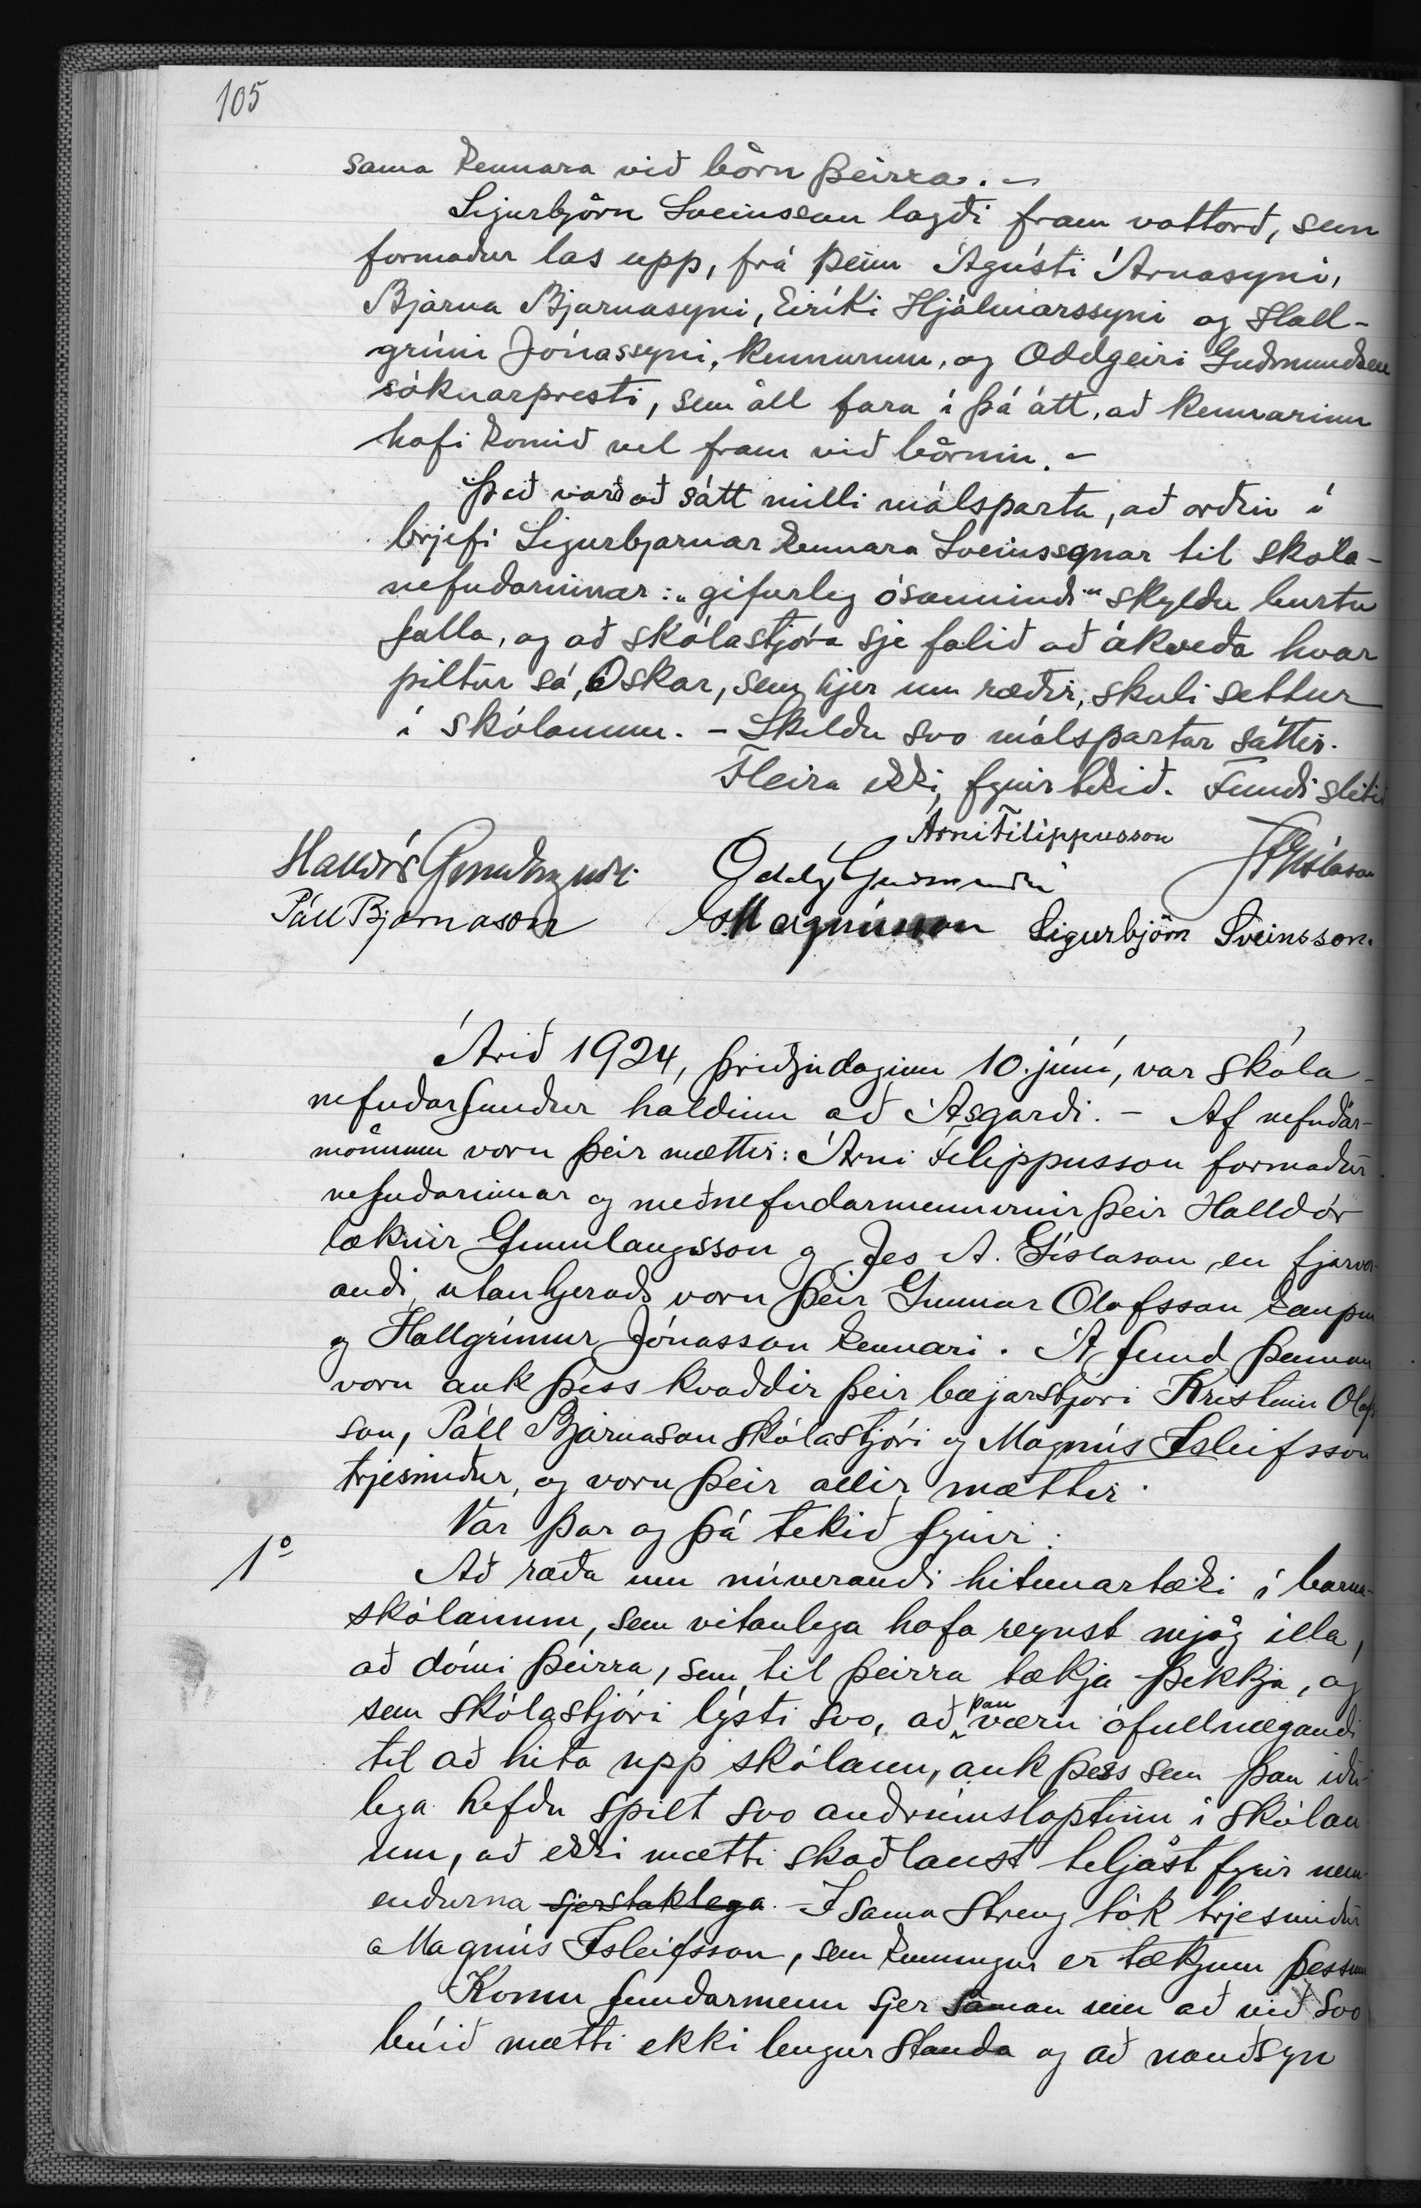 105
sama kennara við börn þeirra. -
Sigurbjörn Sveinsson lagði fram vottorð, sem
formaður las upp, frá þeim Ágústi Árnasyni,
Bjarna Bjarnasyni, Eiríki Hjálmarssyni og Hall-
grími Jónassyni, kennurum, og Oddgeiri Guðmundsen
sóknarpresti, sem öll fara í þá átt, að kennarinn
hafi komið vel fram við börnin. -
Það varð að sátt milli málsparta, að orðin í
brjefi Sigurbjarnar kennara Sveinssonar til skóla-
nefndarinnar: „gifurleg ósannindi“ skyldu burtu
falla, og að skólastjóra sje falið að ákveða hvar
piltur sá, Oskar, sem hjer um ræðir, skuli settur
í skólanum. - Skildu svo málspartar sáttir.
Fleira ekki fyrirtekið. Fundi slitið
Árni Filippusson
Halldór Gunnlaugss. Oddg Guðmundsen JAGíslason
Páll Bjarnason Magnússon Sigurbjörn Sveinsson.
Árið 1924, þriðjudaginn 10. júní, var skóla-
nefndarfundur haldinn að Ásgarði. - Af nefndar-
mönnum voru þeir mættir: Árni Filippusson formaður
nefndarinnar og meðnefndarmennirnir þeir Halldór
læknir Gunnlaugsson og Jes A. Gíslason, en fjarver-
andi utanhjeraðs voru þeir Gunnar Olafsson kaupm
og Hallgrímur Jónasson kennari. Á fund þennan
voru auk þess kvaddir þeir bæjarstjóri Kristinn Olafs
son, Páll Bjarnason skólastjóri og Magnús Isleifsson
trjesmiður, og voru þeir allir mættir.
Var þar og þá tekið fyrir:
1º Að ræða um núverandi hitunartæki í barna-
skólanum, sem vitanlega hafa reynst mjög illa,
að dómi þeirra, sem til þeirra tækja þekkja, og
sem skólastjóri lýsti svo, að þau væru ófullnægandi
til að hita upp skólann, auk þess sem þau iðu-
lega hefðu spilt svo andrúmsloptinu í skólan
um, að ekki mætti skaðlaust teljast fyrir nem-
endurna sjerstaklega. - I sama streng tók trjesmiður
Magnús Isleifsson, sem kunnugur er tækjum þessum
Komu fundarmenn sjer saman um að við svo
búið mætti ekki lengur standa og að nauðsyn